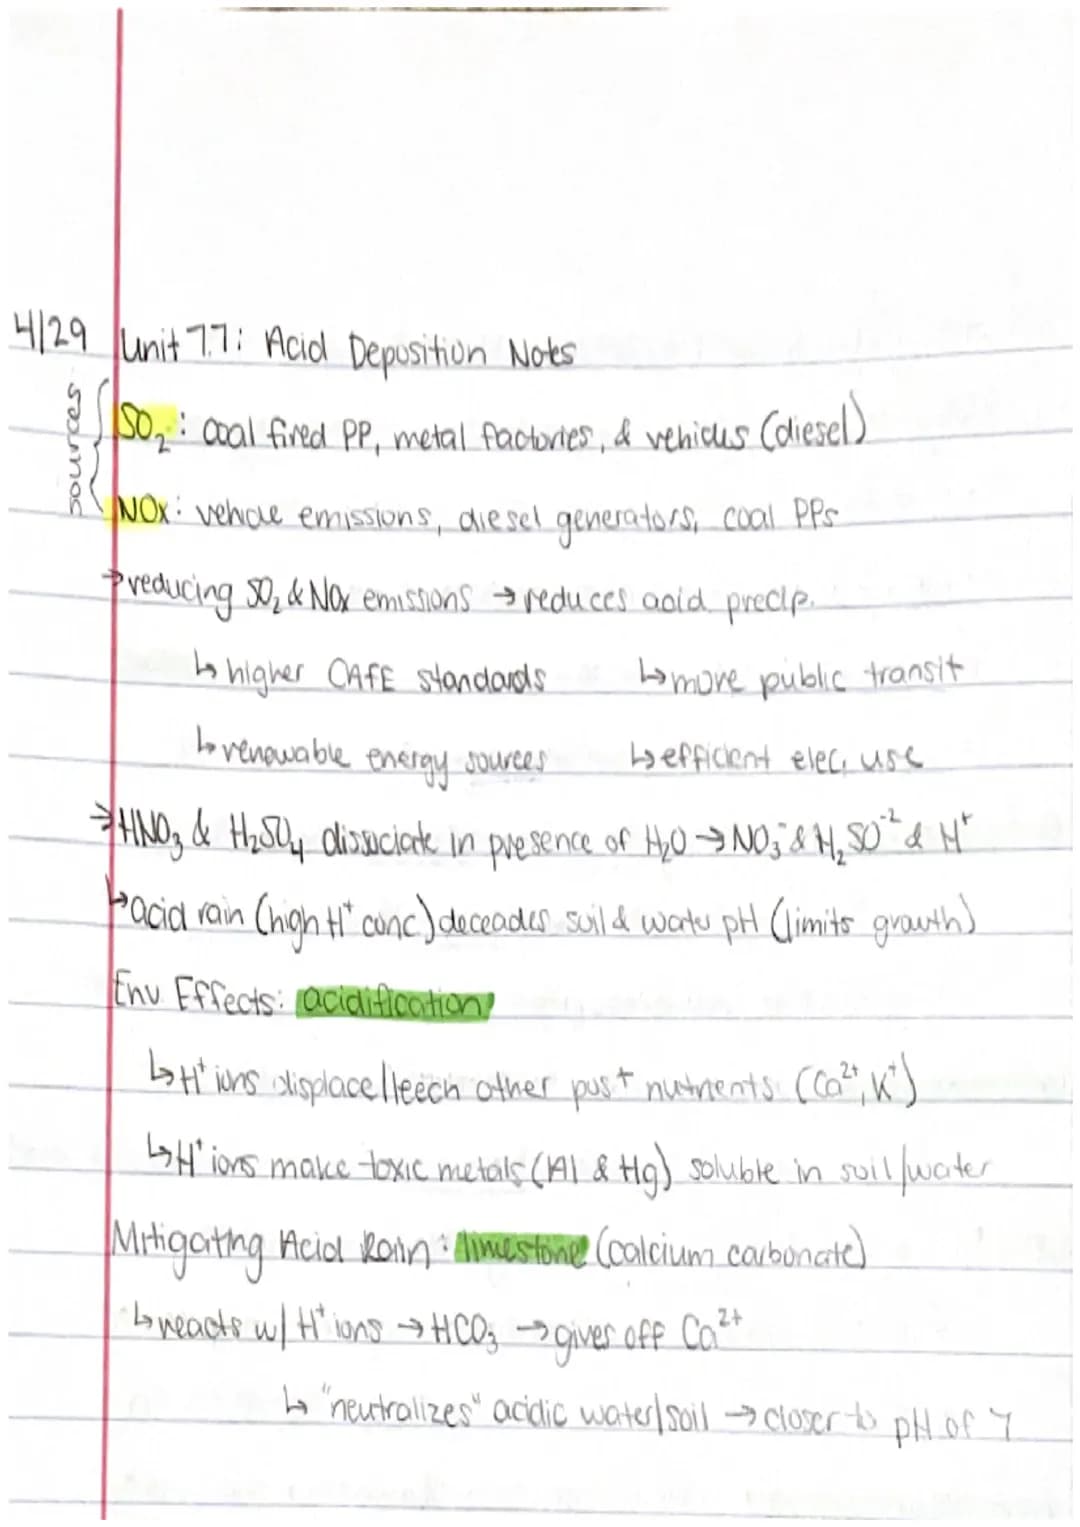 4/29 Unit 7.7: Acid Deposition Notes
sources
SO₂: coal fired PP, metal factories, & vehicles (diesel)
NOx: vehicle emissions, diesel generators, coal PPs
→reducing SO₂ & NOx emissions → reduces acid precip.
↳ higher CAFE standards ↳more public transit
↳renewable energy sources ↳efficient elec. use
→HNO₃ & H₂SO₄ dissociate in presence of H₂O → NO₃⁻ & H₂SO⁻² & H⁺
↳acid rain (high H⁺ conc) deceades soil & water pH (limits growth)
Env. Effects: acidification
↳H⁺ ions displace/leech other pos + nutrients (Ca²⁺, K⁺)
↳H⁺ ions make toxic metals (Al & Hg) soluble in soil/water
Mitigating Acid Rain: limestone (calcium carbonate)
↳reacts w/ H⁺ ions → HCO₃ → gives off Ca²⁺
↳ "neutralizes" acidic water/soil → closer to pH of 7